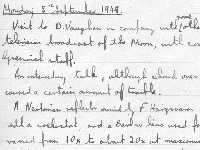 Monday 5th September 1949.
Visit to D. Vaughan in company with
television broadcast of the Moon, with
Greenwich staff.
An interesting talk, although cloud over
caused a certain amount of trouble.
A Newtonian reflector owned by F. Hargreaves
with a coelostat and a Barlow lens used fo
varied from 10x to about 20x at maximum